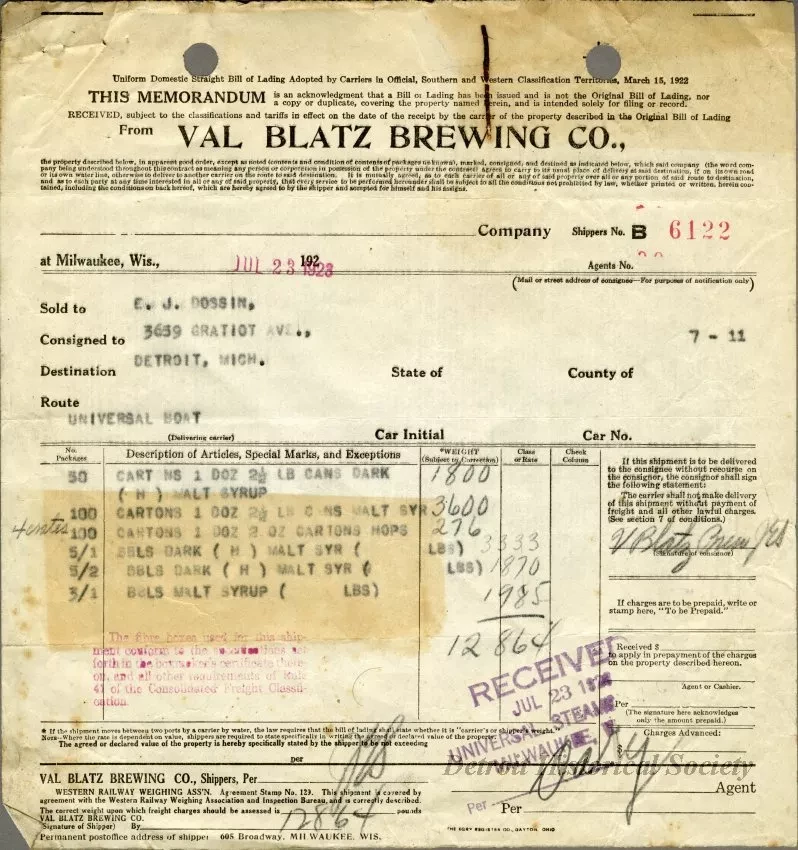 Uniform Domestic Straight Bill of Lading Adopted by Carriers in Official, Southern and Western Classification Territories, March 15, 1922
THIS MEMORANDUM is an acknowledgment that a Bill of Lading has been issued and is not the Original Bill of Lading, nor
a copy or duplicate, covering the property named herein, and is intended solely for filing or record.
RECEIVED, subject to the classifications and tariffs in effect on the date of the receipt by the carrier of the property described in the Original Bill of Lading
From VAL BLATZ BREWING CO.,
the property described below, in apparent good order, except as noted (contents and condition of contents of packages unknown), marked, consigned, and destined as indicated below, which said company (the word com-
pany being understood throughout this contract as meaning any person or corporation in possession of the property under the contract) agrees to carry to its usual place of delivery at said destination, if on its own road
or its own water line, otherwise to deliver to another carrier on the route to said destination. It is mutually agreed, as to each carrier of all or any of said property over all or any portion of said route to destination,
and as to each party at any time interested in all or any of said property, that every service to be performed hereunder shall be subject to all the conditions not prohibited by law, whether printed or written, herein con-
tained, including the conditions on back hereof, which are hereby agreed to by the shipper and accepted for himself and his assigns.
Company Shippers No. B 6122
at Milwaukee, Wis., JUL 23 1923 192
Agents No.
(Mail or street address of consignee—For purposes of notification only)
Sold to E. J. DOSSIN,
Consigned to 3659 GRATIOT AVE., 7 - 11
Destination DETROIT, MICH. State of County of
Route
UNIVERSAL BOAT
(Delivering carrier) Car Initial Car No.
No. Packages Description of Articles, Special Marks, and Exceptions *WEIGHT (Subject to Correction) Class or Rate Check Column
50 CART NS 1 DOZ 2½ LB CANS DARK 1800
( H ) MALT SYRUP
100 CARTONS 1 DOZ 2½ LB C NS MALT SYR 3600
100 CARTONS 1 DOZ 2 OZ CARTONS HOPS 276
5/1 BBLS DARK ( H ) MALT SYR ( LBS) 3333
5/2 BBLS DARK ( H ) MALT SYR ( LBS) 1870
3/1 BBLS MALT SYRUP ( LBS) 1985
12864
The fibre boxes used for this ship-
ment conform to the specifications set
forth in the boxmaker's certificate there-
on, and all other requirements of Rule
41 of the Consolidated Freight Classifi-
cation.
If this shipment is to be delivered
to the consignee without recourse on
the consignor, the consignor shall sign
the following statement:
The carrier shall not make delivery
of this shipment without payment of
freight and all other lawful charges.
(See section 7 of conditions.)
V Blatz Brew
(Signature of consignor)
If charges are to be prepaid, write or
stamp here, "To be Prepaid."
Received $
to apply in prepayment of the charges
on the property described hereon.
Agent or Cashier.
Per
(The signature here acknowledges
only the amount prepaid.)
Charges Advanced:
$
RECEIVED
JUL 23
UNIVERSAL STEAM
MILWAUKEE
* If the shipment moves between two ports by a carrier by water, the law requires that the bill of lading shall state whether it is "carrier's or shipper's weight."
Note—Where the rate is dependent on value, shippers are required to state specifically in writing the agreed or declared value of the property.
The agreed or declared value of the property is hereby specifically stated by the shipper to be not exceeding
per
Detroit Historical Society
VAL BLATZ BREWING CO., Shippers, Per Agent
WESTERN RAILWAY WEIGHING ASS'N. Agreement Stamp No. 129. This shipment is covered by
agreement with the Western Railway Weighing Association and Inspection Bureau, and is correctly described.
The correct weight upon which freight charges should be assessed is 12864 pounds
Per Per
VAL BLATZ BREWING CO.
(Signature of Shipper) By
THE EGRY REGISTER CO., DAYTON, OHIO
Permanent postoffice address of shipper 605 Broadway, MILWAUKEE, WIS.